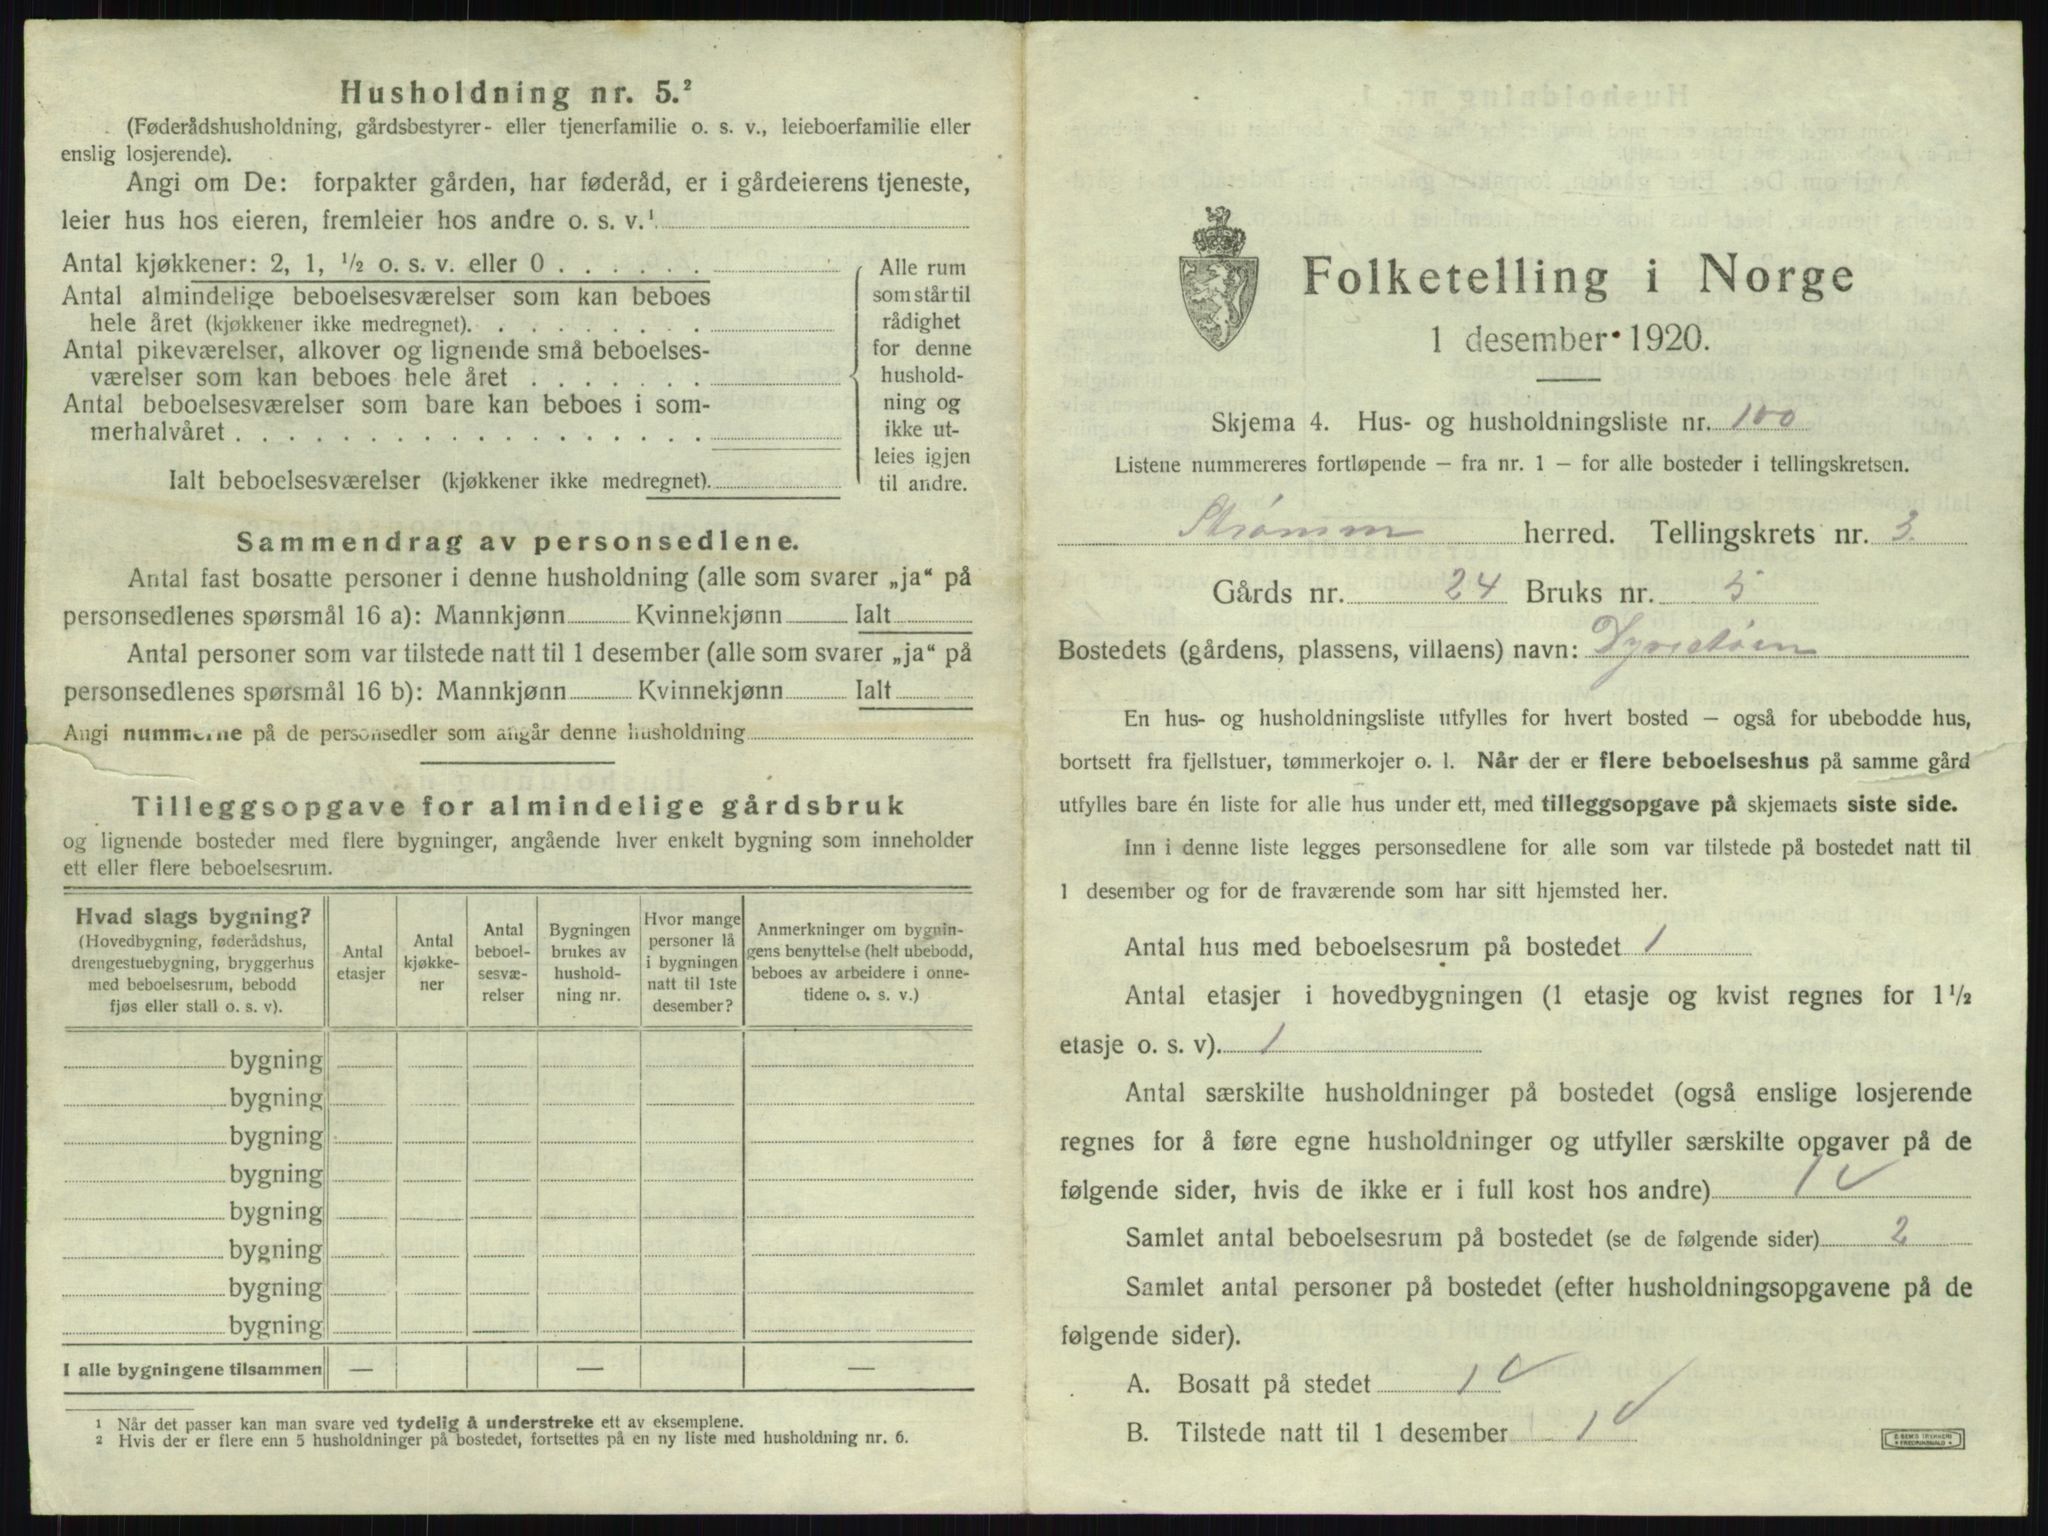 Husholdning nr. 5.²
(Føderådshusholdning, gårdsbestyrer- eller tjenerfamilie o. s. v., leieboerfamilie eller
enslig losjerende).
Angi om De: forpakter gården, har føderåd, er i gårdeierens tjeneste,
leier hus hos eieren, fremleier hos andre o. s. v.¹
Antal kjøkkener: 2, 1, ½ o. s. v. eller 0
Antal almindelige beboelsesværelser som kan beboes
hele året (kjøkkener ikke medregnet).
Antal pikeværelser, alkover og lignende små beboelses-
værelser som kan beboes hele året
Antal beboelsesværelser som bare kan beboes i som-
merhalvåret
Ialt beboelsesværelser (kjøkkener ikke medregnet).
Alle rum
som står til
rådighet
for denne
hushold-
ning og
ikke ut-
leies igjen
til andre.
Sammendrag av personsedlene.
Antal fast bosatte personer i denne husholdning (alle som svarer „ja“ på
personsedlenes spørsmål 16 a): Mannkjønn Kvinnekjønn Ialt
Antal personer som var tilstede natt til 1 desember (alle som svarer „ja“ på
personsedlenes spørsmål 16 b): Mannkjønn Kvinnekjønn Ialt
Angi nummerne på de personsedler som angår denne husholdning
Tilleggsopgave for almindelige gårdsbruk
og lignende bosteder med flere bygninger, angående hver enkelt bygning som inneholder
ett eller flere beboelsesrum.
Hvad slags bygning?
(Hovedbygning, føderådshus,
drengestuebygning, bryggerhus
med beboelsesrum, bebodd
fjøs eller stall o. s. v).
Antal
etasjer
Antal
kjøkke-
ner
Antal
beboel-
sesvæ-
relser
Bygningen
brukes av
hushold-
ning nr.
Hvor mange
personer lå
i bygningen
natt til 1ste
desember?
Anmerkninger om bygnin-
gens benyttelse (helt ubebodd,
beboes av arbeidere i onne-
tidene o. s. v.)
bygning
bygning
bygning
bygning
bygning
bygning
bygning
bygning
I alle bygningene tilsammen — — —
¹ Når det passer kan man svare ved tydelig å understreke ett av eksemplene.
² Hvis der er flere enn 5 husholdninger på bostedet, fortsettes på en ny liste med husholdning nr. 6.
Folketelling i Norge
1 desember 1920.
Skjema 4. Hus- og husholdningsliste nr. 100
Listene nummereres fortløpende — fra nr. 1 — for alle bosteder i tellingskretsen.
Strømm herred. Tellingskrets nr. 3.
Gårds nr. 24 Bruks nr. 5
Bostedets (gårdens, plassens, villaens) navn: Dyrstøen
En hus- og husholdningsliste utfylles for hvert bosted — også for ubebodde hus,
bortsett fra fjellstuer, tømmerkojer o. l. Når der er flere beboelseshus på samme gård
utfylles bare én liste for alle hus under ett, med tilleggsopgave på skjemaets siste side.
Inn i denne liste legges personsedlene for alle som var tilstede på bostedet natt til
1 desember og for de fraværende som har sitt hjemsted her.
Antal hus med beboelsesrum på bostedet 1
Antal etasjer i hovedbygningen (1 etasje og kvist regnes for 1½
etasje o. s. v). 1
Antal særskilte husholdninger på bostedet (også enslige losjerende
regnes for å føre egne husholdninger og utfyller særskilte opgaver på de
følgende sider, hvis de ikke er i full kost hos andre) 1
Samlet antal beboelsesrum på bostedet (se de følgende sider) 2
Samlet antal personer på bostedet (efter husholdningsopgavene på de
følgende sider).
A. Bosatt på stedet 1
B. Tilstede natt til 1 desember 1